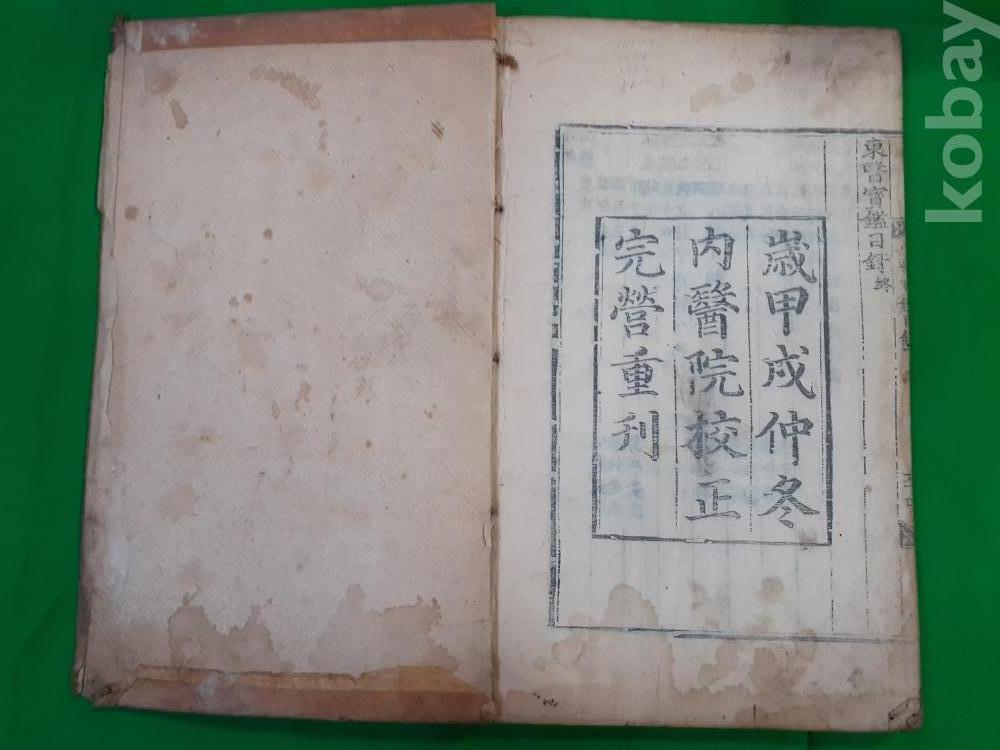 東醫寶鑑目錄終
歲甲戌仲冬
內醫院校正
完營重刊
kobay